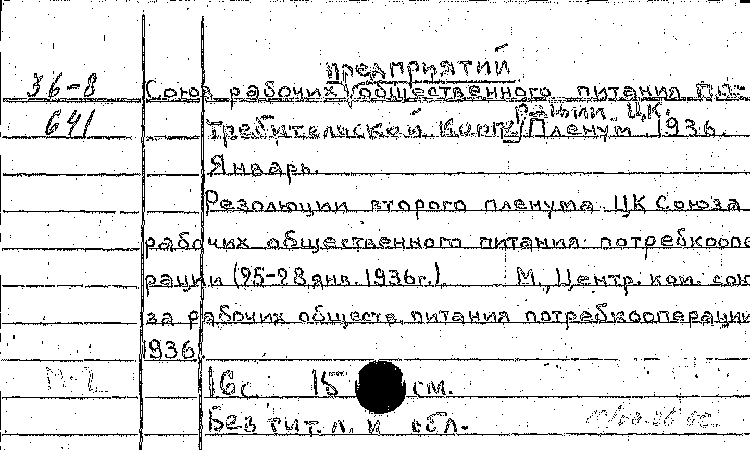 предприятий
36-8 Союз рабочих общественного питания По-
641 требительской Кооп
рации. ЦК.
Пленум. 1936.
Январь.
Резолюции второго пленума ЦК Союза
рабочих общественного питания потребкоопе
рации (25-28 янв. 1936г.). М., Центр. ком. сою
за рабочих обществ. питания потребкооперации
1936
М-2 16с. 15 см.
Без тит. л. и обл.